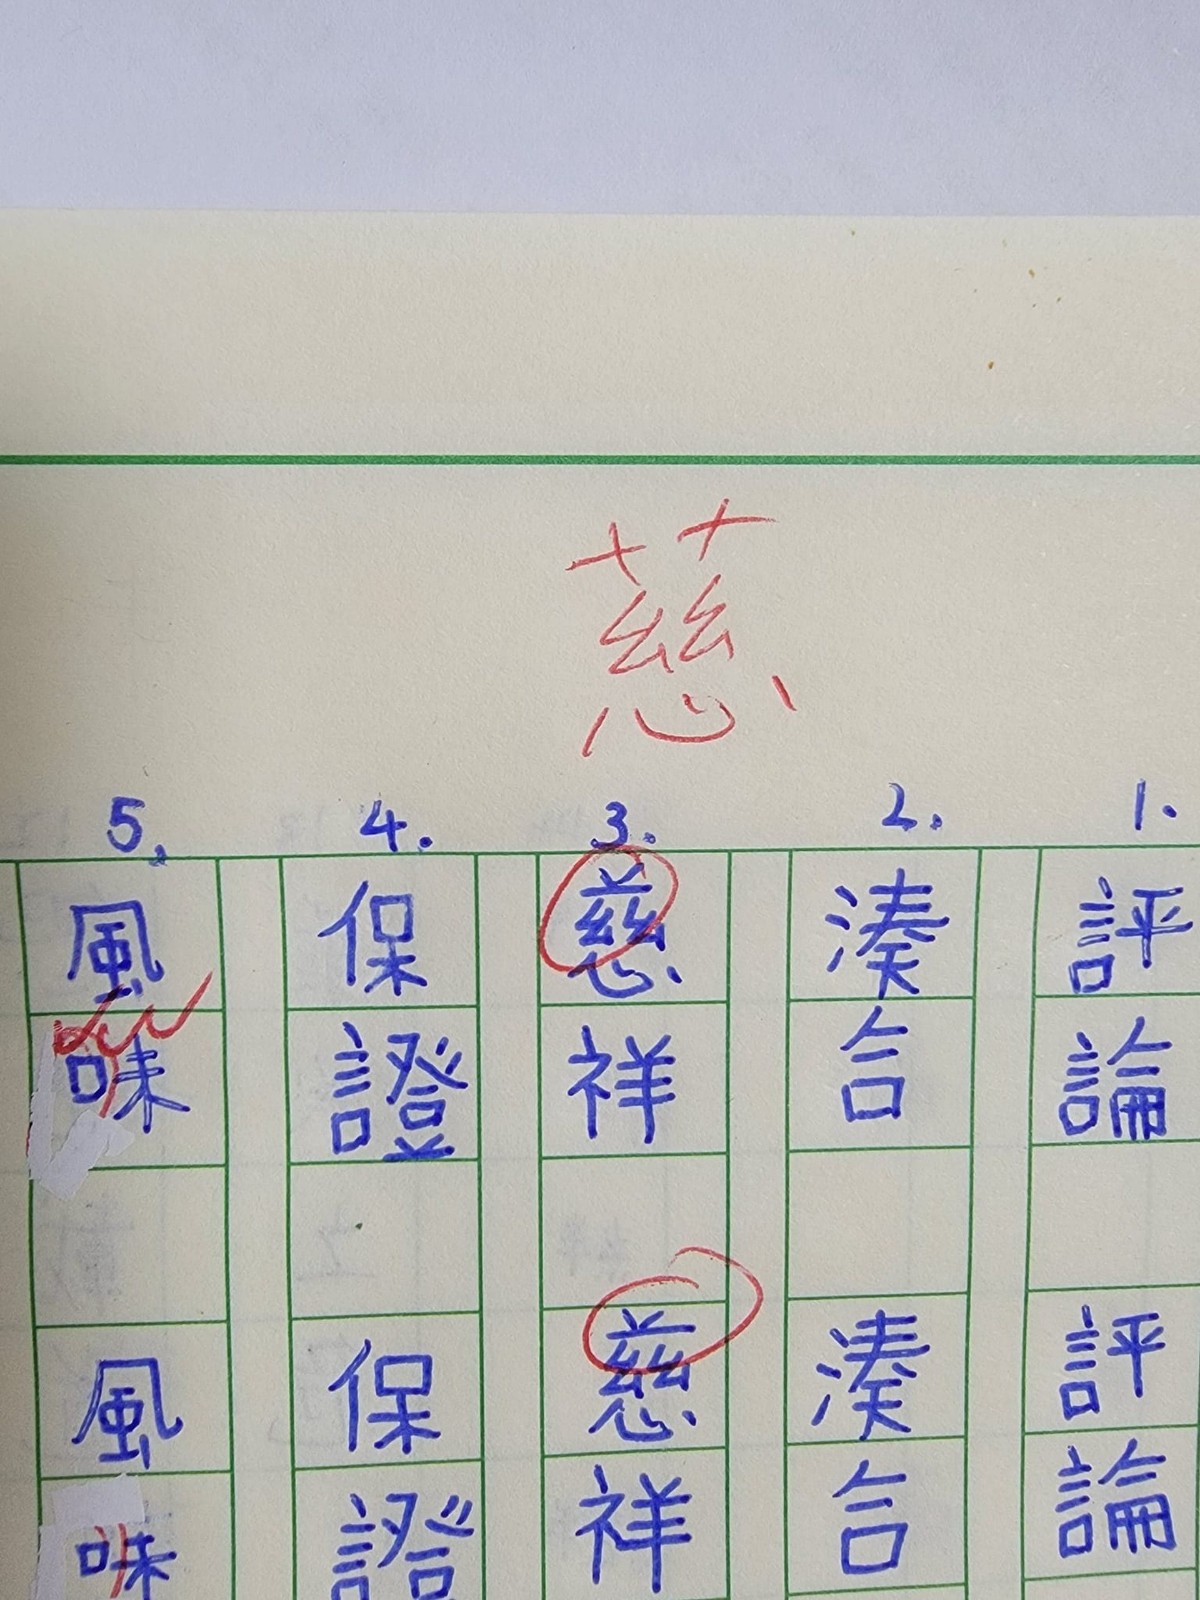 慈
1.
評論
評論
2.
湊合
湊合
3.
慈祥
慈祥
4.
保證
保證
5.
風味
風味